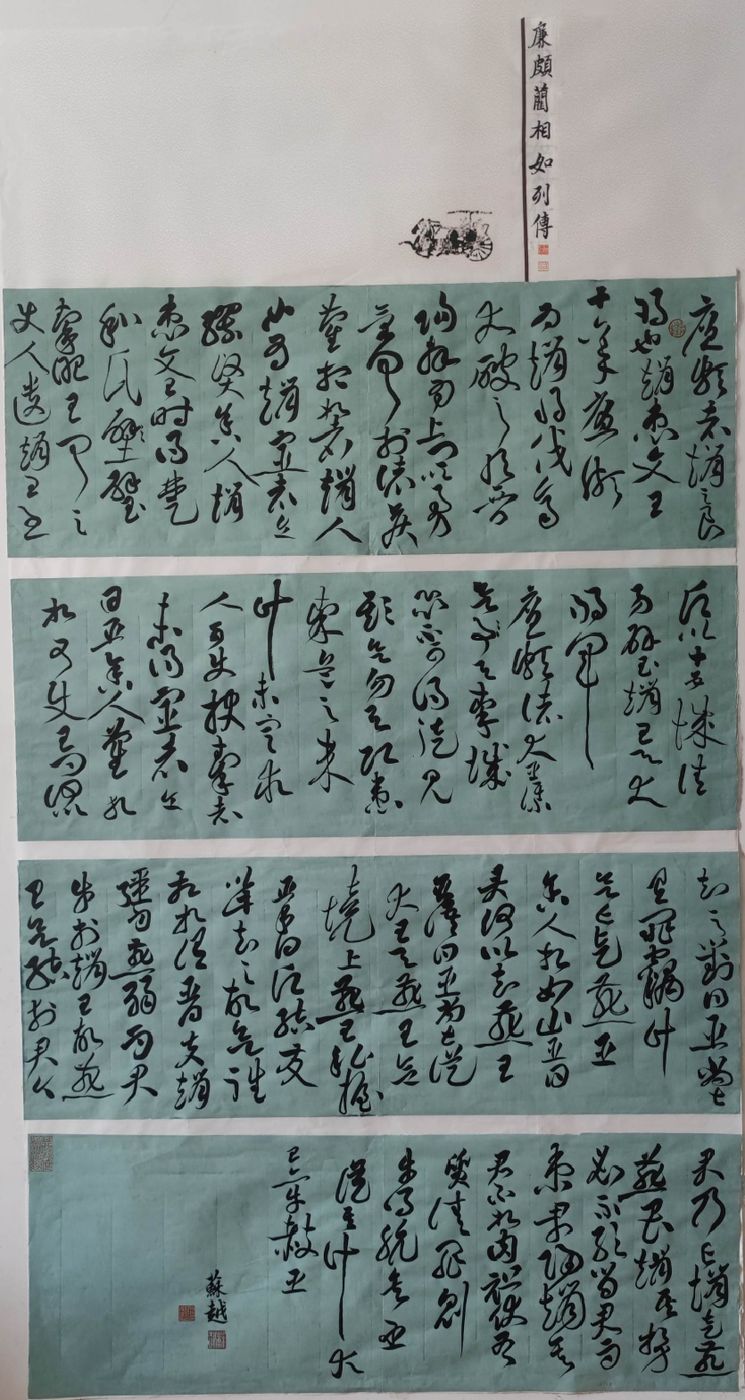 廉頗藺相如列傳
廉頗者趙之良
將也趙惠文王
十六年廉頗
為趙將伐齊
大破之取晉
陽拜為上卿以勇
氣聞於諸侯
藺相如者趙人
也為趙宦者令
繆賢舍人趙
惠文王時得楚
和氏璧
秦昭王聞之
使人遺趙王書
願以十五城請
易璧趙王與大
將軍
廉頗諸大臣謀
欲予秦秦城
恐不可得徒見
欺欲勿予即患
秦兵之來
計未定求
人可使報秦者
未得宦者令
曰臣舍人藺相
如可使王問何
知之對曰臣嘗
有罪竊計
欲亡走燕臣
舍人相如止臣曰
君何以知燕王
臣語曰臣嘗從
大王與燕王會
境上燕王私握
臣手曰願結友
知之故欲往
相如謂臣夫趙
彊而燕弱而君
幸於趙王故燕
王欲結於君今
君乃亡趙走燕
燕畏趙其勢
必不敢留君而
束君歸趙矣
君不如肉袒伏斧
質請罪則
幸得脫矣臣
從其計大
王亦幸赦臣
蘇越